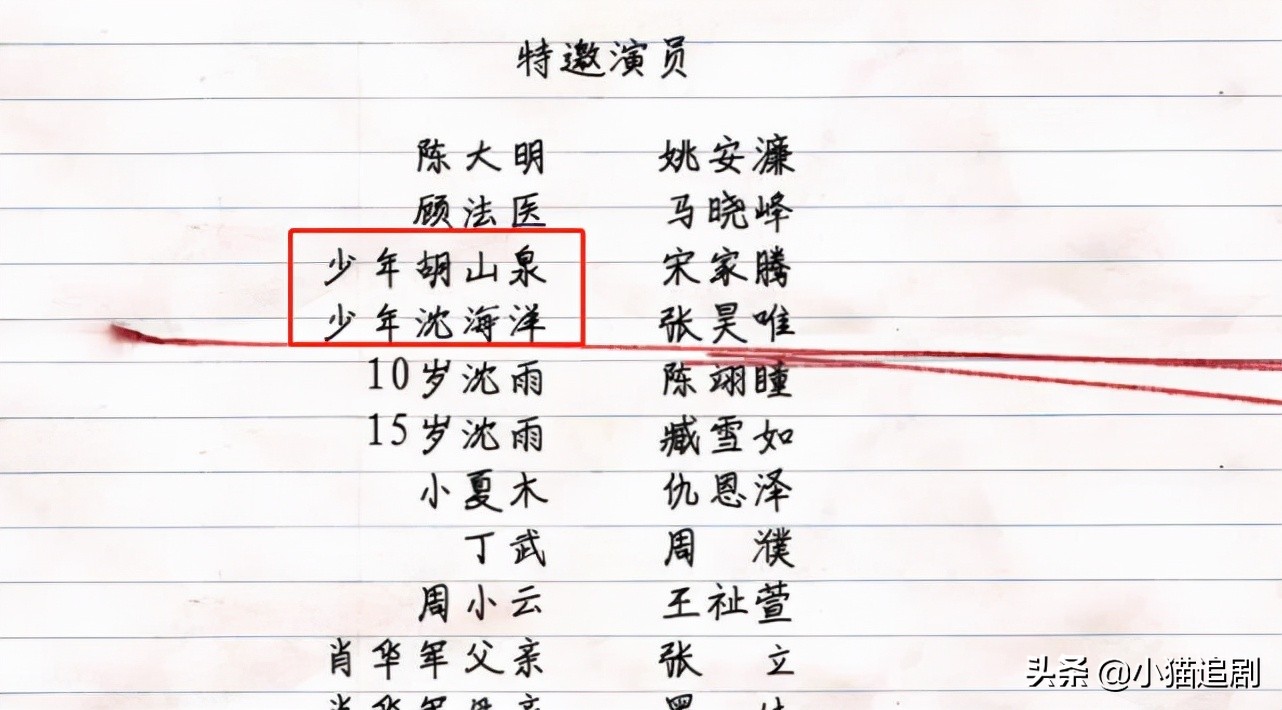 特邀演员
陈大明 姚安濂
顾法医 马晓峰
少年胡山泉 宋家腾
少年沈海洋 张昊唯
10岁沈雨 陈翊瞳
15岁沈雨 臧雪如
小夏木 仇恩泽
丁武 周濮
周小云 王祉萱
肖华军父亲 张立
头条 @小猫追剧